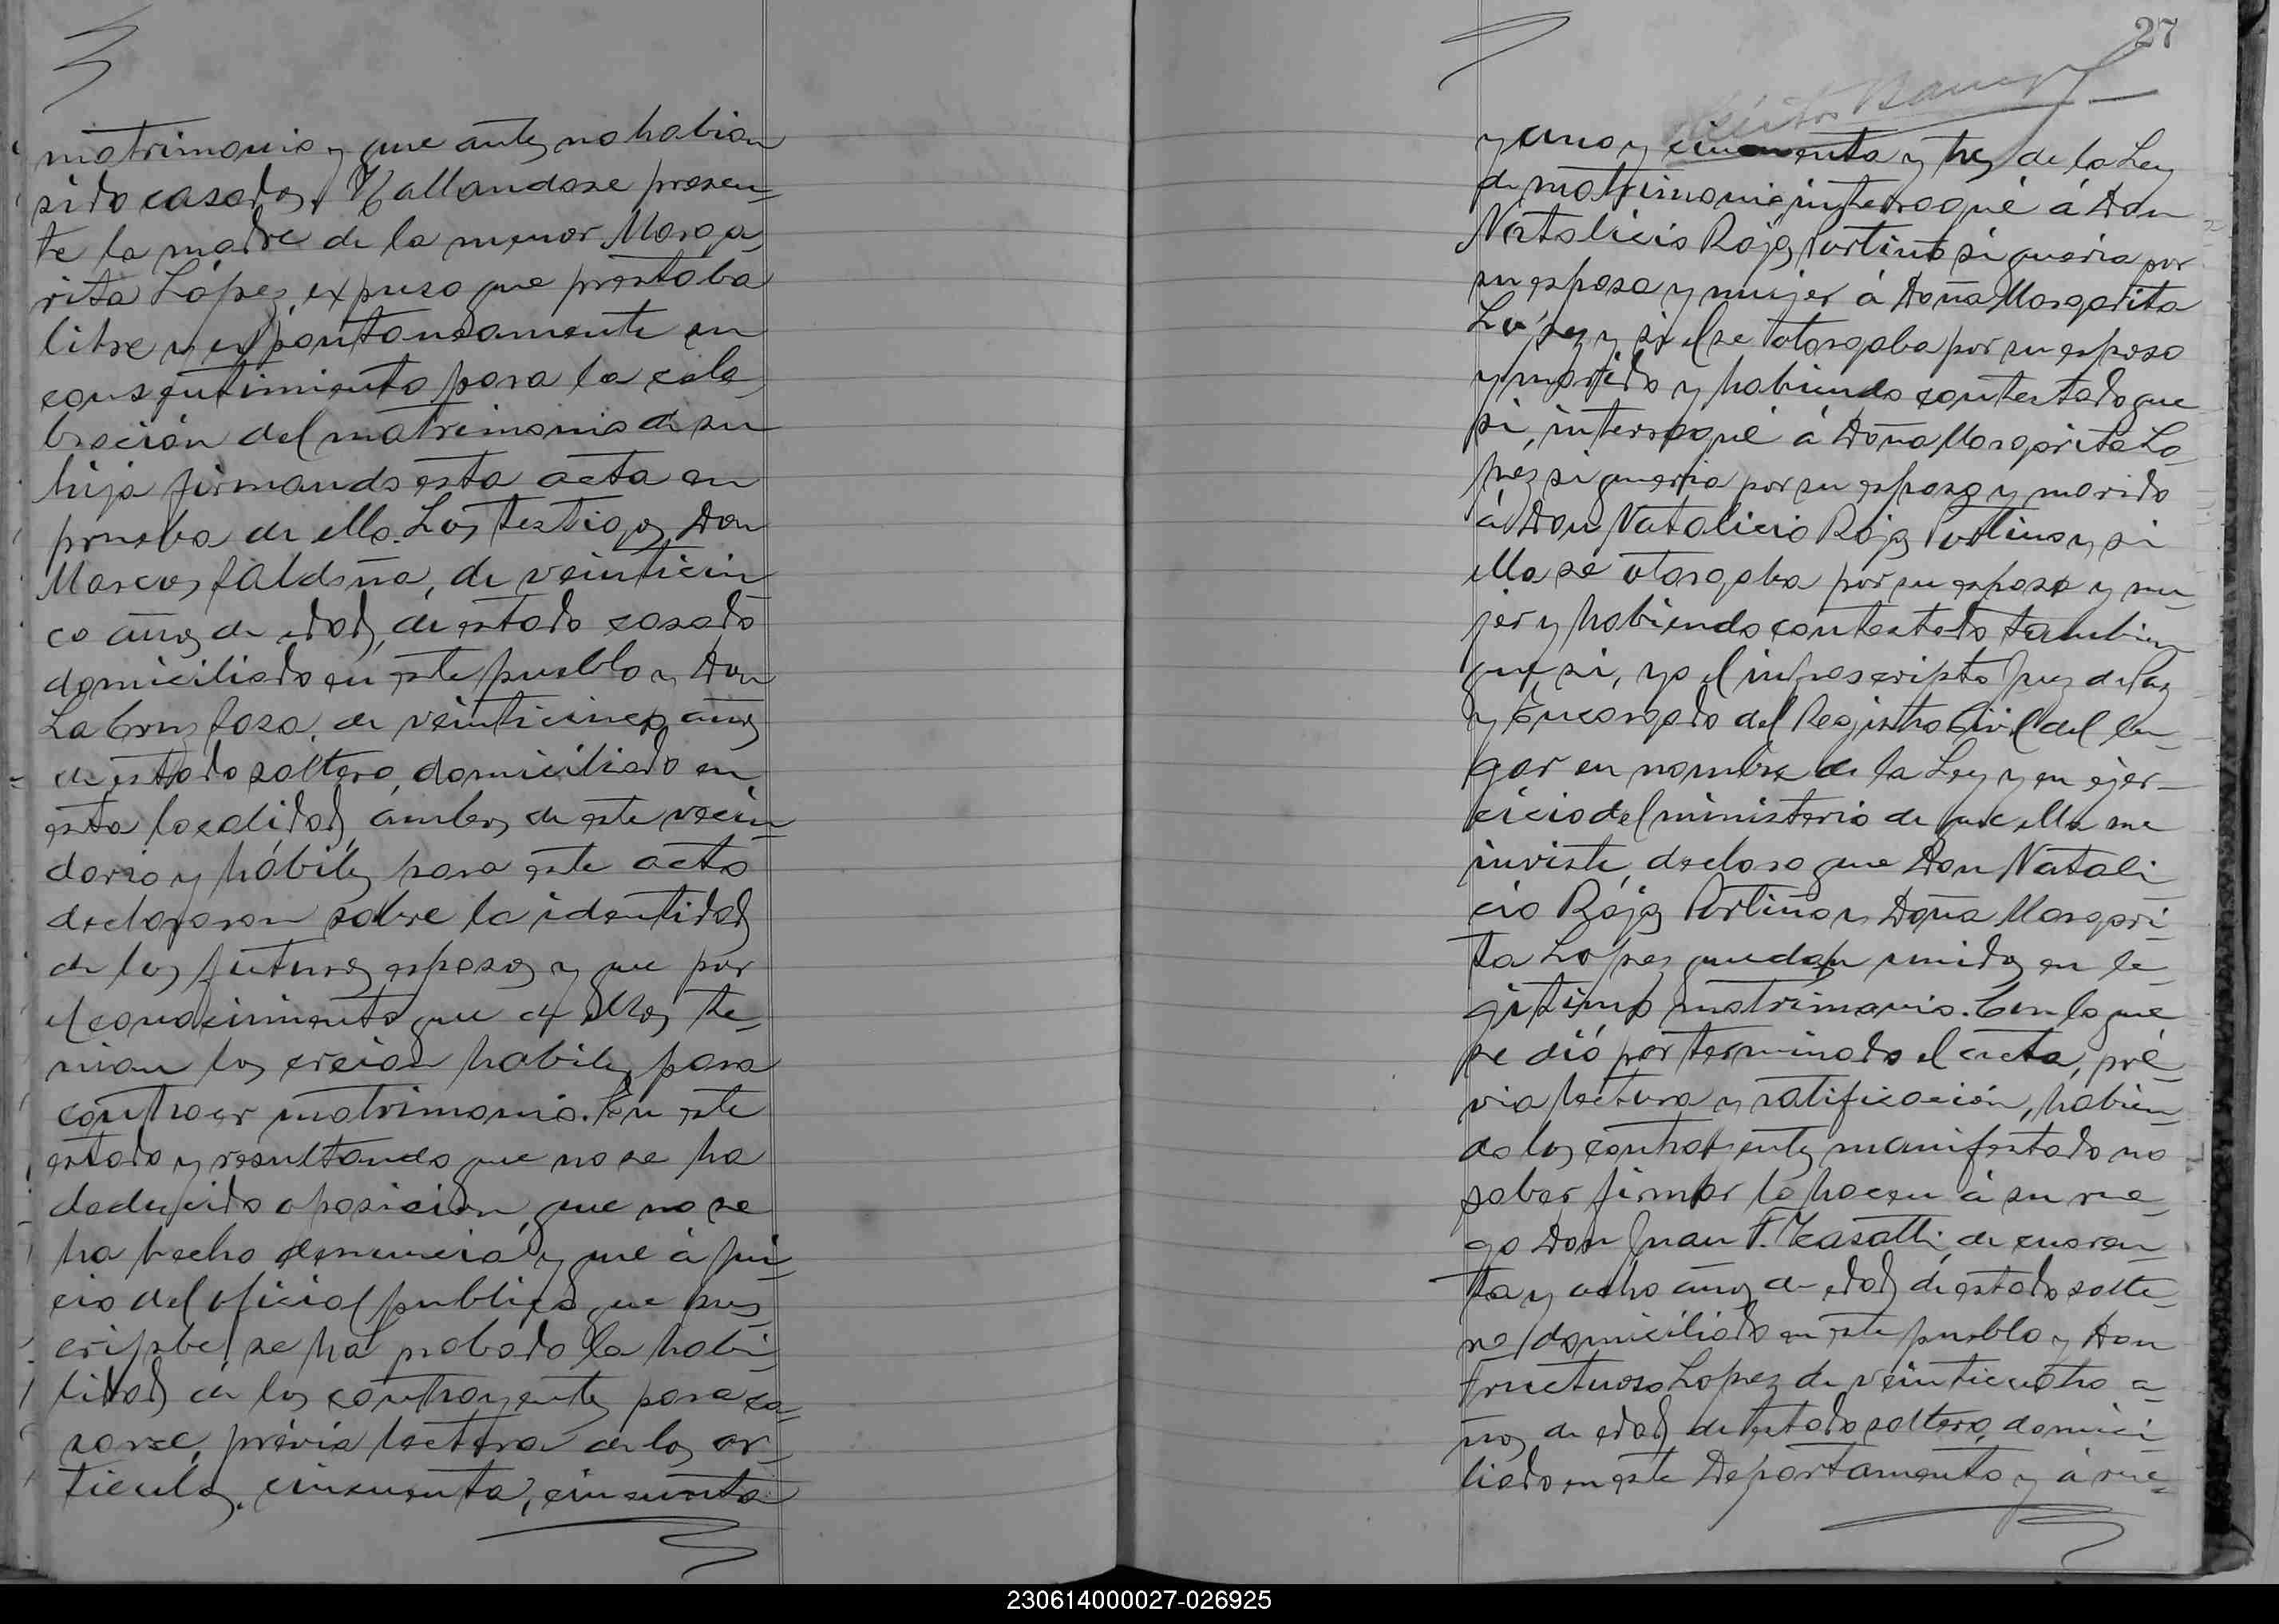 matrimonio y que antes no habian
sido casados. Hallandose presen=
te la madre de la menor Marga-
rita López, expuso que prestaba
libre y espontaneamente su
consentimiento para la cele-
bración del matrimonio de su
hija firmando esta acta en
prueba de ello. Los testigos Don
Marcos Saldaña, de veinticin-
co años de edad, de estado casado
domiciliado en este pueblo y Don
La Cruz Sosa, de veinticinco años
de estado soltero, domiciliado en
esta localidad, ambos de este vecin=
dario y hábiles para este acto
declararon sobre la identidad
de los futuros esposos y que por
el conocimiento que de ellos te-
nian los creian habiles para
contraer matrimonio. En este
estado y resultando que no se ha
deducido oposición, que no se
ha hecho denuncia y que á jui-
cio del oficial publico que sus-
cribe, se ha probado la habi-
lidad de los contrayentes para ca=
sarse, prévia lectura de los ar-
ticulos, cincuenta, cincuenta
27
y uno y cincuenta y tres de la Ley
de matrimonio interrogué á Don
Natalicio Rojas Portino si queria por
su esposa y mujer á Doña Margarita
López y si el se otorgaba por su esposo
y marido y habiendo contestado que
si, interrogué á Doña Margarita Lo-
pez si queria por su esposo y marido
á Don Natalicio Rojas Portino y si
ella se otorgaba por su esposa y mu-
jer y habiendo contestado tambien
que si, yo el infrascripto Juez de Paz
y Encargado del Registro Civil del lu-
gar en nombre de la Ley y en ejer-
cicio del ministerio de que ella me
inviste, declaro que Don Natali-
cio Rojas Portino y Doña Margari-
ta Lopez quedan unidos en le-
gitimo matrimonio. Con lo que
se dió por terminado el acta, pré-
via lectura y ratificación, habien-
do los contrayentes manifestado no
saber firmar lo hacen á su rue-
go Don Juan F. Casatti, de cuaren-
ta y ocho años de edad de estado solte-
ro, domiciliado en este pueblo y Don
Fructuoso Lopez de veinticuatro a-
ños de edad de estado soltero, domici-
liado en este Departamento y á rue=
230614000027-026925